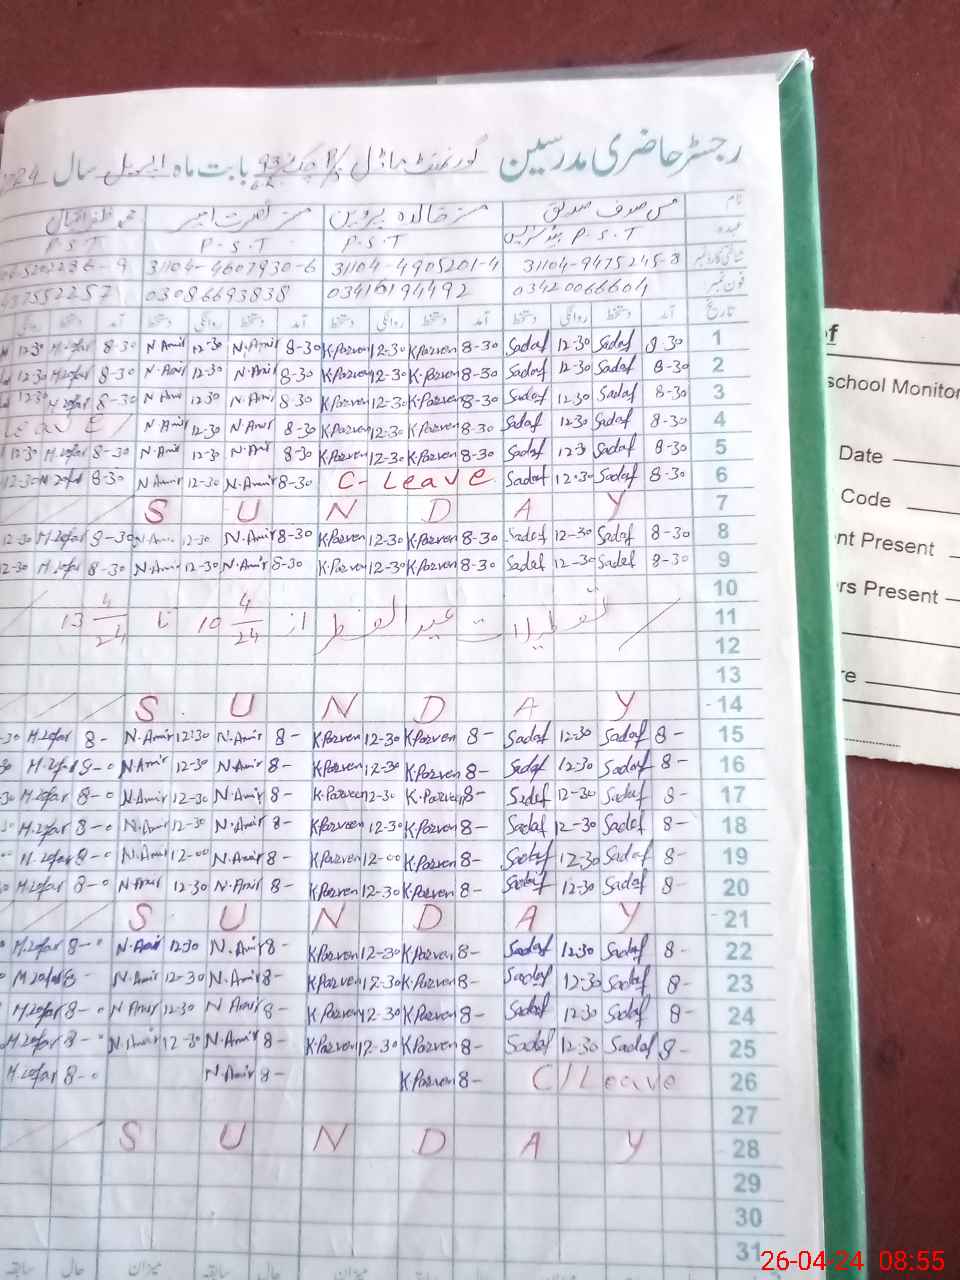 رجسٹر حاضری مدرسین گورنمنٹ ماڈل بابت ماہ اپریل سال
نام مس صدف صدیق مسز خالدہ پروین مسز نصرت امیر محمد ظفر اقبال
عہدہ P.S.T P.S.T P.S.T P.S.T
شناختی کارڈ نمبر 31104-9475245-8 31104-4905201-4 31104-4607930-6
فون نمبر 03420066604 03416194492 03086693838
تاریخ آمد دستخط روانگی دستخط آمد دستخط روانگی دستخط آمد دستخط روانگی دستخط آمد دستخط روانگی
12-30 M.zafar 8-30 N.Amir 12-30 N.Amir 8-30 K.Parven 12-30 K.Parven 8-30 Sadaf 12-30 Sadaf 8-30 1
12-30 M.zafar 8-30 N.Amir 12-30 N.Amir 8-30 K.Parven 12-30 K.Parven 8-30 Sadaf 12-30 Sadaf 8-30 2
12-30 M.zafar 8-30 N.Amir 12-30 N.Amir 8-30 K.Parven 12-30 K.Parven 8-30 Sadaf 12-30 Sadaf 8-30 3
Leave N.Amir 12-30 N.Amir 8-30 K.Parven 12-30 K.Parven 8-30 Sadaf 12-30 Sadaf 8-30 4
12-30 M.zafar 8-30 N.Amir 12-30 N.Amir 8-30 K.Parven 12-30 K.Parven 8-30 Sadaf 12-3 Sadaf 8-30 5
12-30 M.zafar 8-30 N.Amir 12-30 N.Amir 8-30 C-Leave Sadaf 12-30 Sadaf 8-30 6
S U N D A Y 7
12-30 M.zafar 8-30 N.Amir 12-30 N.Amir 8-30 K.Parven 12-30 K.Parven 8-30 Sadaf 12-30 Sadaf 8-30 8
12-30 M.zafar 8-30 N.Amir 12-30 N.Amir 8-30 K.Parven 12-30 K.Parven 8-30 Sadaf 12-30 Sadaf 8-30 9
10
تعطیلات عیدالفطر از 10 4/24 تا 13 4/24 11
12
13
S U N D A Y 14
M.zafar 8- N.Amir 12:30 N.Amir 8- K.Parven 12-30 K.Parven 8- Sadaf 12-30 Sadaf 8- 15
M.zafar 8-0 N.Amir 12-30 N.Amir 8- K.Parven 12-30 K.Parven 8- Sadaf 12-30 Sadaf 8- 16
M.zafar 8-0 N.Amir 12-30 N.Amir 8- K.Parven 12-30 K.Parven 8- Sadaf 12-30 Sadaf 8- 17
M.zafar 8-0 N.Amir 12-30 N.Amir 8- K.Parven 12-30 K.Parven 8- Sadaf 12-30 Sadaf 8- 18
M.zafar 8-0 N.Amir 12-00 N.Amir 8- K.Parven 12-00 K.Parven 8- Sadaf 12-30 Sadaf 8- 19
M.zafar 8-0 N.Amir 12-30 N.Amir 8- K.Parven 12-30 K.Parven 8- Sadaf 12-30 Sadaf 8- 20
S U N D A Y 21
M.zafar 8-0 N.Amir 12-30 N.Amir 8- K.Parven 12-30 K.Parven 8- Sadaf 12-30 Sadaf 8- 22
M.zafar 8- N.Amir 12-30 N.Amir 8- K.Parven 12-30 K.Parven 8- Sadaf 12-30 Sadaf 8- 23
M.zafar 8-0 N.Amir 12-30 N.Amir 8- K.Parven 12-30 K.Parven 8- Sadaf 12-30 Sadaf 8- 24
M.zafar 8-0 N.Amir 12-30 N.Amir 8- K.Parven 12-30 K.Parven 8- Sadaf 12-30 Sadaf 8- 25
M.zafar 8-0 N.Amir 8- K.Parven 8- C/Leave 26
27
S U N D A Y 28
29
30
31
school Monitor
Date
Code
nt Present
rs Present
re
26-04-24 08:55